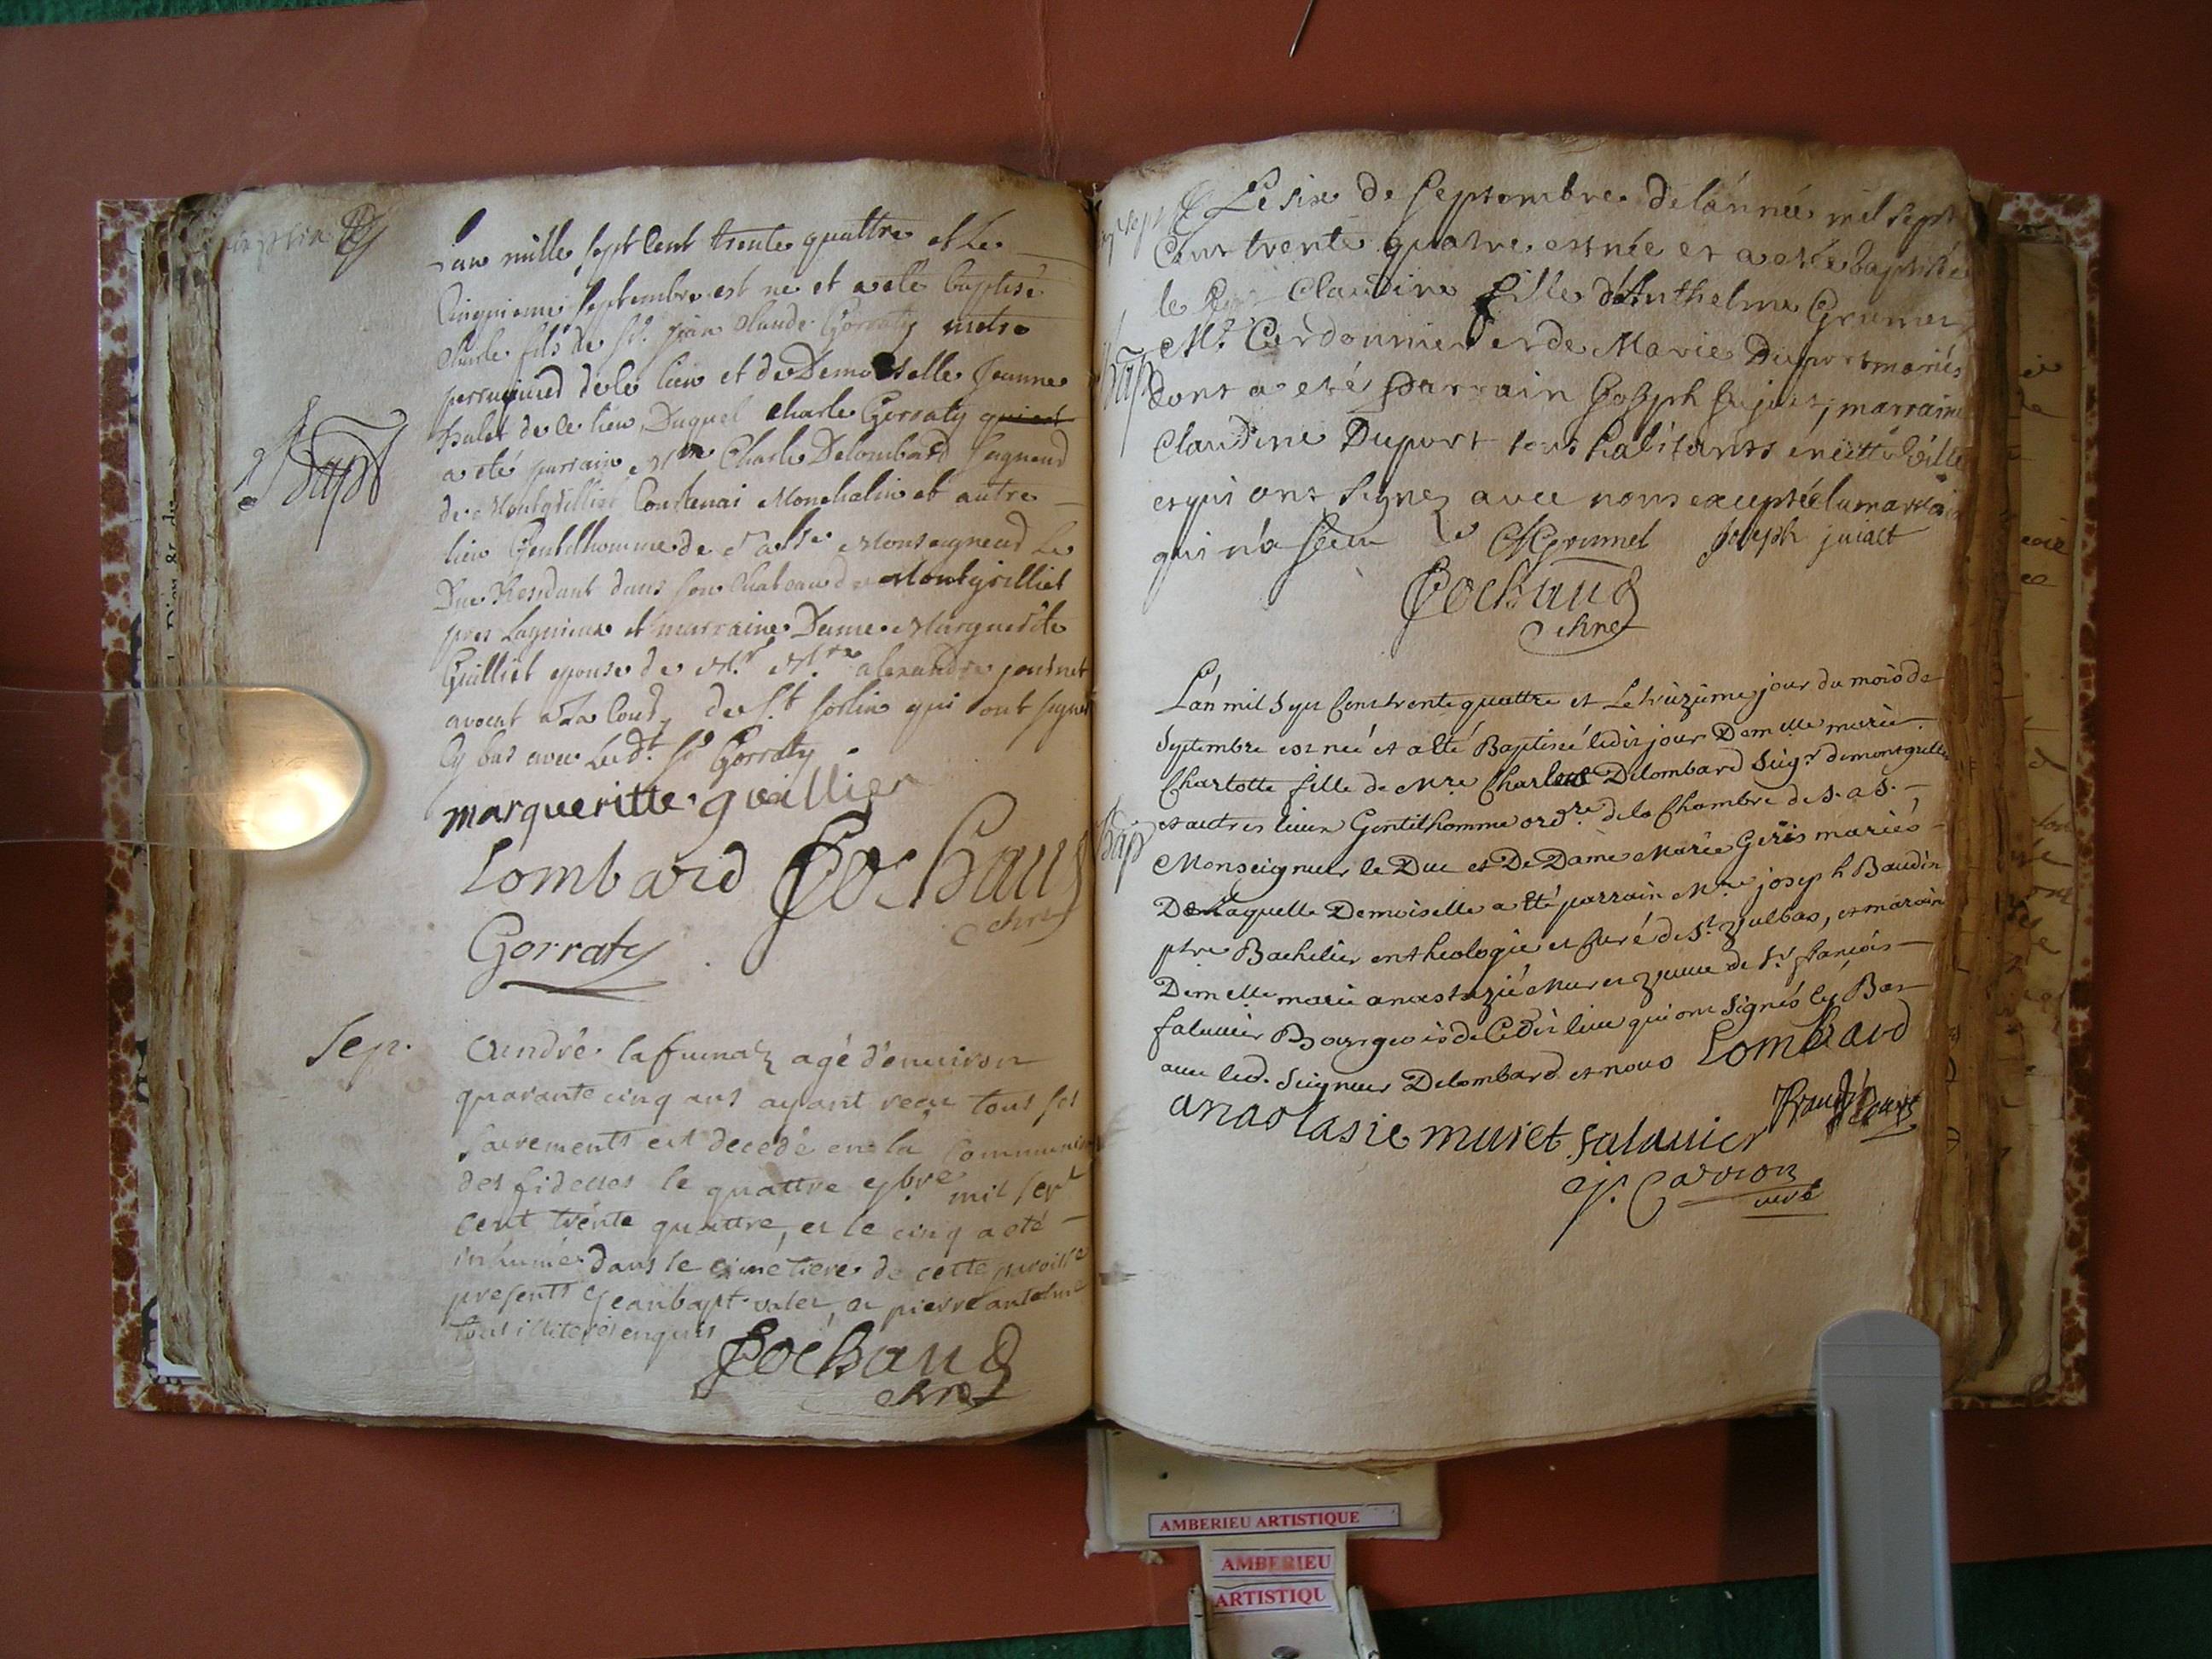 Lan mille sept Cent trente quattre et Le
Cinquieme septembre est ne et a ete baptisé
Charle fils de Sr. Jean Claude Gorraty metre
perruquied de ce lieu et de Demoiselle Jeanne
de ce lieu, Duquel Charle Gorraty qui est
Bapt
a eté parrain Mre Charle Delombard seigneud
de Montgrilliet Montchalin et autre
lieu Gentilhomme de Monseigneud Le
Duc Residant dans son Chateau de Montgrilliet
pres Lagnieux et marraine Dame Marguerite
Guilliet epouse de Mr. Mre. alexandre
avocat a La Coud de St sorlin qui ont signé
Cy bas avec Led.t Sr Gorraty
margueritte guillier
Lombard Cochaud
Gorraty
Sep. André lafumaz agé d'environ
quarante cinq ans ayant reçu tous ses
sacrements est decedé en la Communion
des fidelles le quattre 7bre mil sept
cent trente quattre, et le cinq a eté
inhumé dans le cimetiere de cette paroisse
presents Jean bapt. et pierre antelme
tous illiterés enquis
Cochaud
Le six de septembre de lánnée mil sept
Cent trente quatre est née et a eté baptisée
le Claudine fille d'Anthelme Grumet
Mr. Cordonnier et de Marie Duport mariés
Bap
dont a eté parrain Joseph Jujat, marraine
Claudine Duport tous habitants en cette Ville
et qui ont signez avec nous exceptée la marraine
qui n'a sceu
Grumel Joseph juiact
Cochaud
Lán mil sept Cent trente quattre et Le treizieme jour du mois de
Septembre est née et a été Baptisée ledit jour Demelle marie
Charlotte fille de Mre Charles Delombard Seigr demontgrillet
et autres lieux Gentilhomme ordre. de la Chambre de S. a S.
Bap
Monseigneur le Duc et De Dame Marie Geris mariés
De Laquelle Demoiselle a été parrain Mre joseph Baudin
ptre Bachelier en theologie et Curé de St vulbas, et maraine
Demelle marie anastazie Muret veuve de Sr françois
falavier Bourgeois de Cedit lieu qui ont Signés Cy Bas
avec led. Seigneur Delombard et nous Lombard
anastasie muret falavier Baudin Curé
J. Carrion
curé
AMBERIEU ARTISTIQUE
AMBERIEU
ARTISTIQU